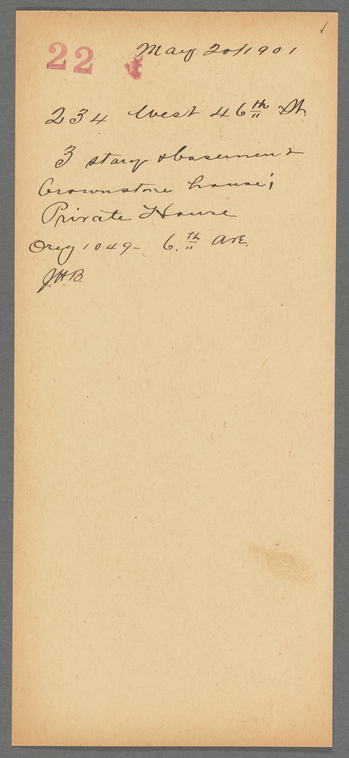 22 May 20/1901
234 West 46th St.
3 story & basement
brownstone house;
Private House
1049 - 6.th Ave.
J.H.B.